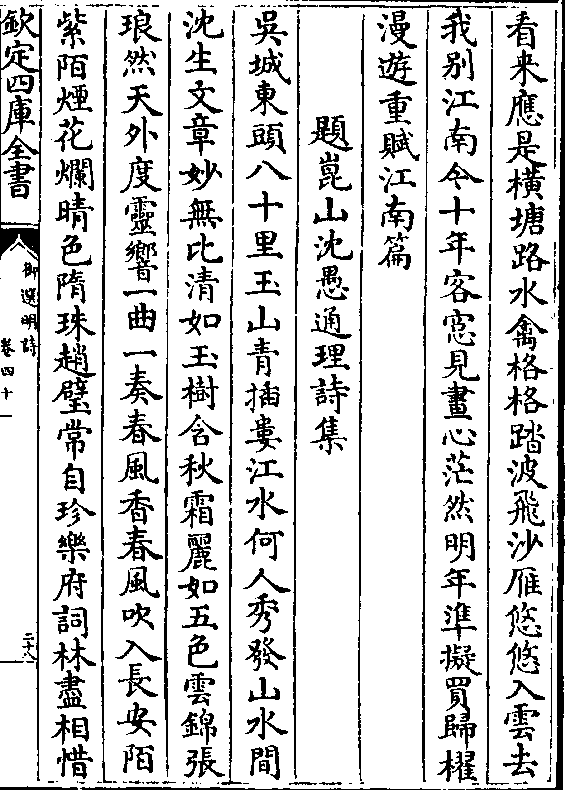 看来應是橫塘路水禽格格踏波飛沙雁悠悠入雲去
我别江南今十年客窓見畫心茫然明年準擬買歸櫂
漫遊重賦江南篇
題崑山沈愚通理詩集
吳城東頭八十里玉山青插婁江水何人秀發山水間
沈生文章妙無比清如玉樹含秋霜麗如五色雲錦張
琅然天外度靈響一曲一奏春風香春風吹入長安陌
紫陌煙花爛晴色隋珠趙璧常自珍樂府詞林盡相惜
欽定四庫全書
御選明詩
卷四十
二十八